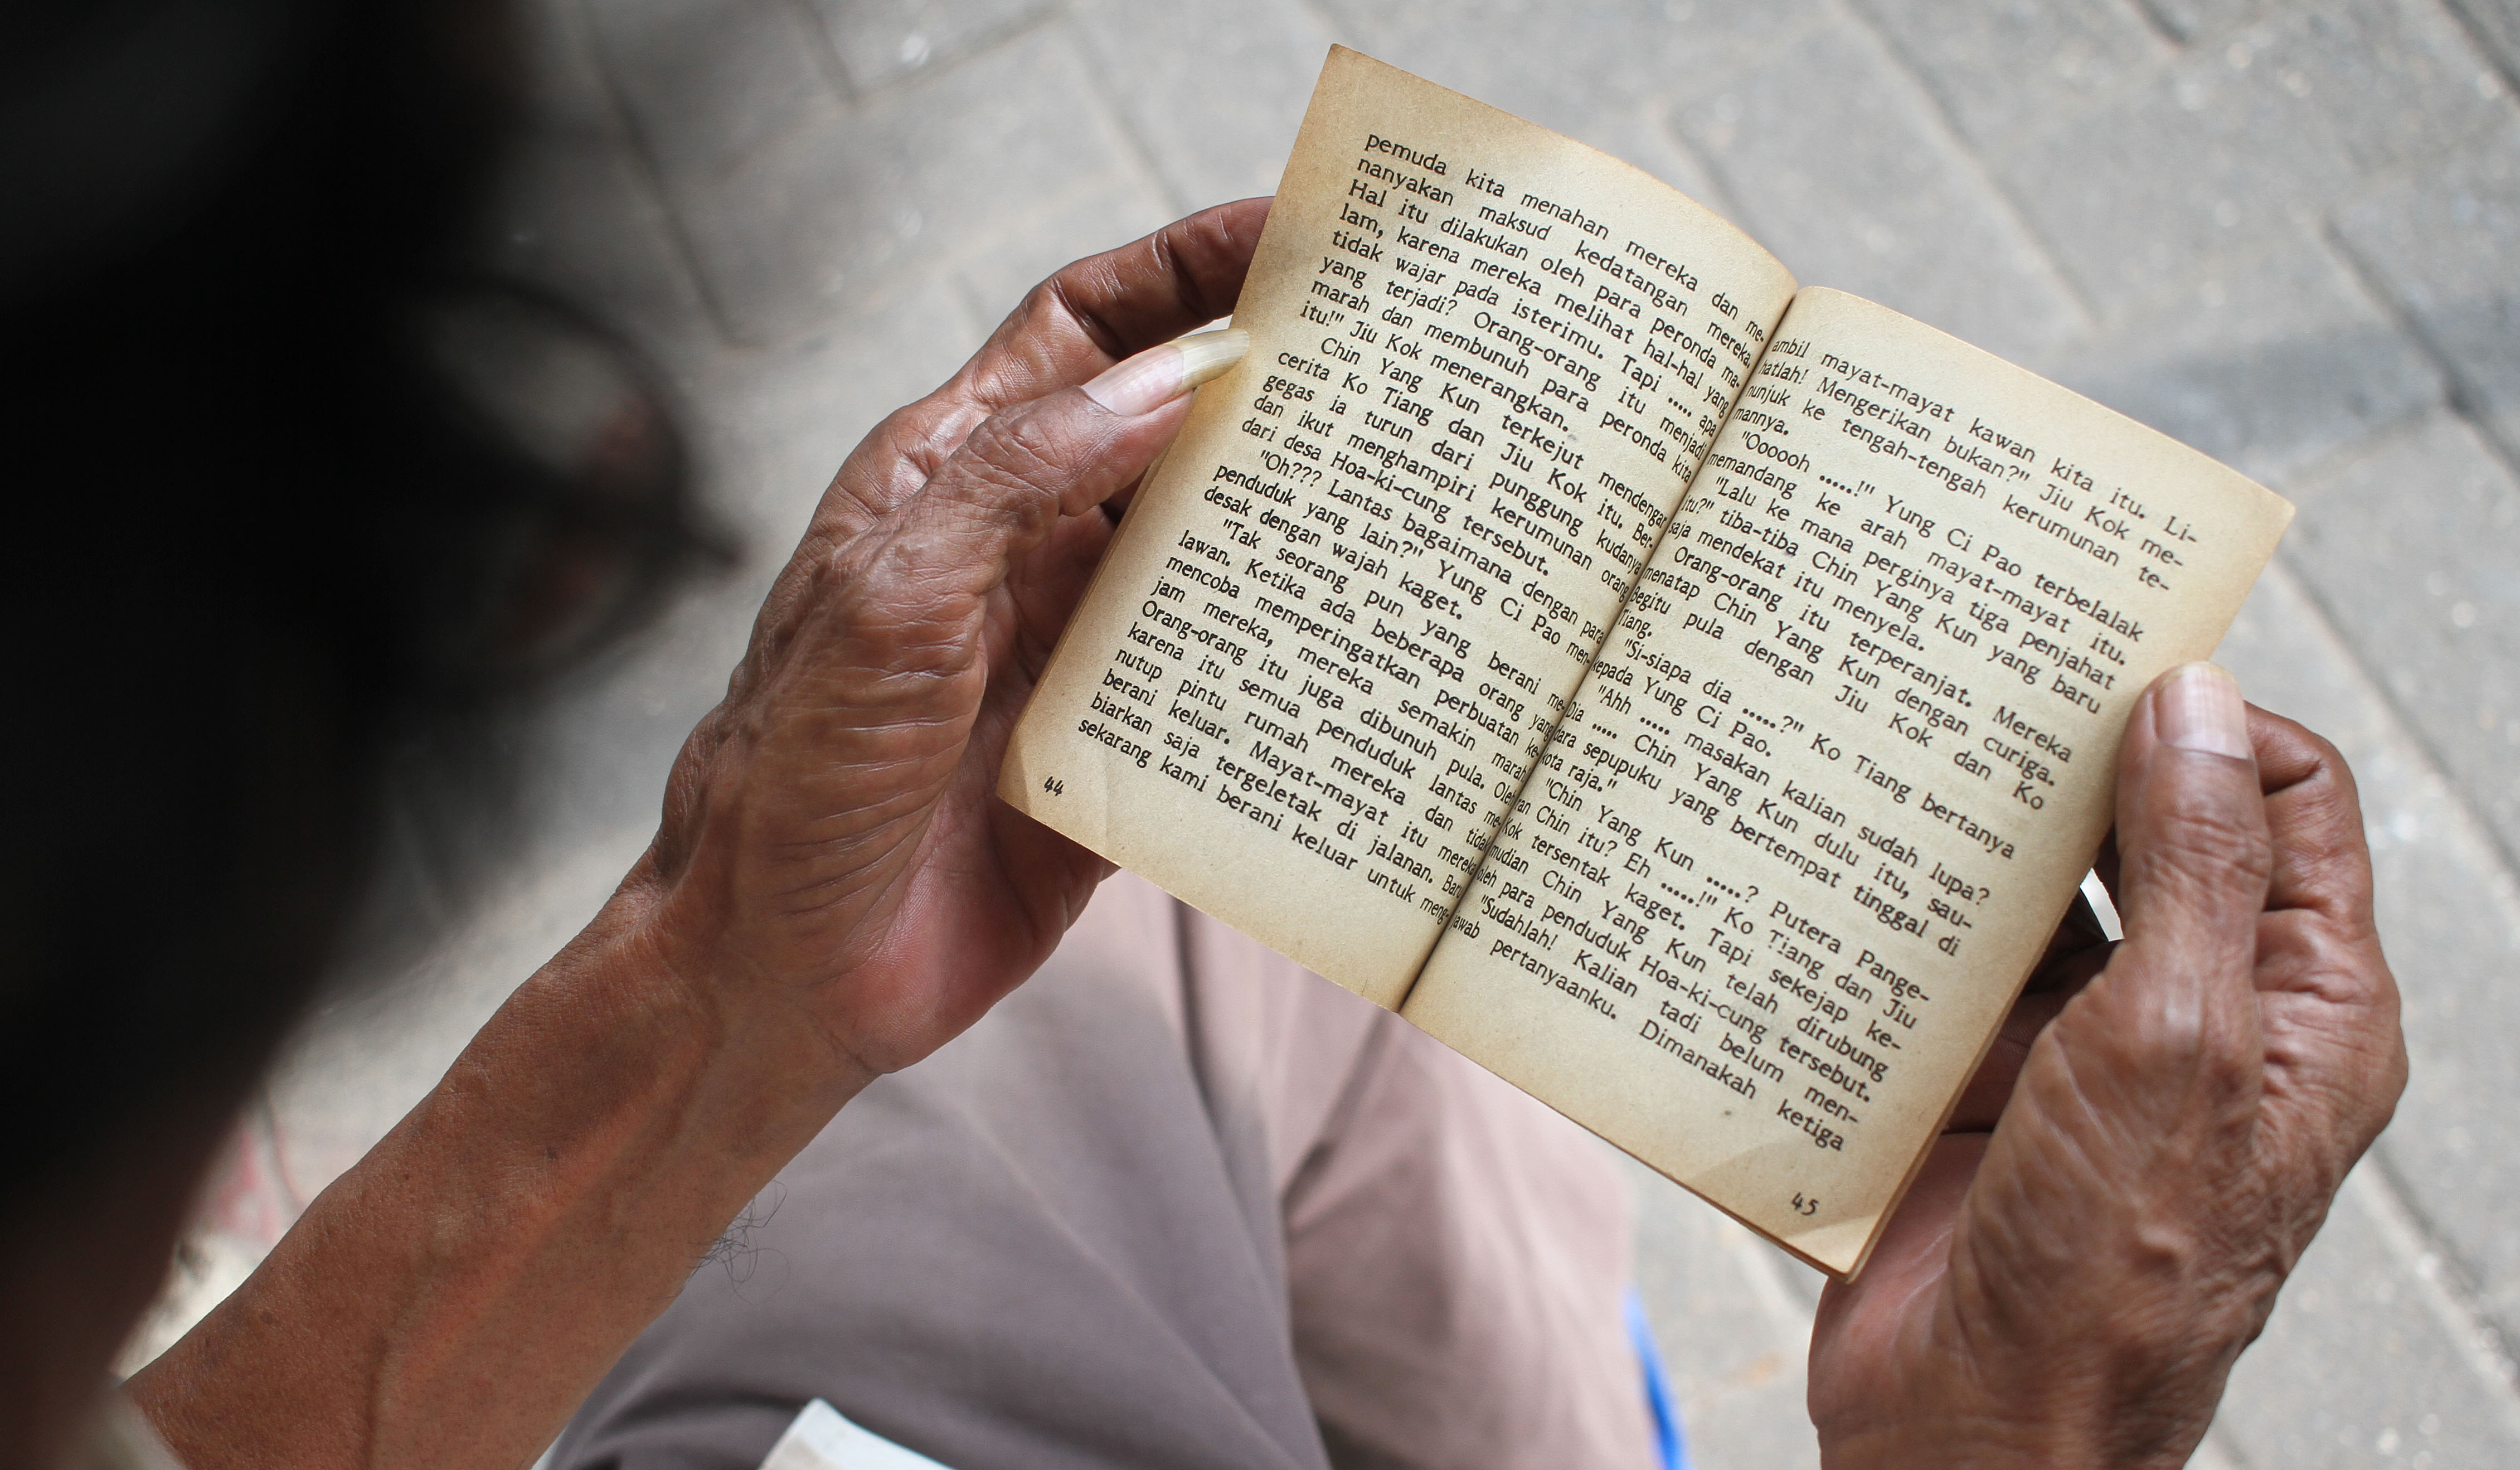 pemuda kita menahan mereka dan me-
nanyakan maksud kedatangan mereka.
Hal itu dilakukan oleh para peronda ma-
lam, karena mereka melihat hal-hal yang
tidak wajar pada isterimu. Tapi ..... apa
yang terjadi? Orang-orang itu menjadi
marah dan membunuh para peronda kita
itu!" Jiu Kok menerangkan.
Chin Yang Kun terkejut mendengar
cerita Ko Tiang dan Jiu Kok itu. Ber-
gegas ia turun dari punggung kudanya
dan ikut menghampiri kerumunan orang
dari desa Hoa-ki-cung tersebut.
"Oh??? Lantas bagaimana dengan para
penduduk yang lain?" Yung Ci Pao men-
desak dengan wajah kaget.
"Tak seorang pun yang berani me-
lawan. Ketika ada beberapa orang yang
mencoba memperingatkan perbuatan ke-
jam mereka, mereka semakin marah.
Orang-orang itu juga dibunuh pula. Oleh
karena itu semua penduduk lantas me-
nutup pintu rumah mereka dan tidak
berani keluar. Mayat-mayat itu mereka
biarkan saja tergeletak di jalanan. Baru
sekarang kami berani keluar untuk meng-
44
ambil mayat-mayat kawan kita itu. Li-
hatlah! Mengerikan bukan?" Jiu Kok me-
nunjuk ke tengah-tengah kerumunan te-
mannya.
"Oooooh .....!" Yung Ci Pao terbelalak
memandang ke arah mayat-mayat itu.
"Lalu ke mana perginya tiga penjahat
itu?" tiba-tiba Chin Yang Kun yang baru
saja mendekat itu menyela.
Orang-orang itu terperanjat. Mereka
menatap Chin Yang Kun dengan curiga.
Begitu pula dengan Jiu Kok dan Ko
Tiang.
"Si-siapa dia .....?" Ko Tiang bertanya
kepada Yung Ci Pao.
"Ahh ..... masakan kalian sudah lupa?
Dia ..... Chin Yang Kun dulu itu, sau-
dara sepupuku yang bertempat tinggal di
kota raja."
"Chin Yang Kun .....? Putera Pange-
ran Chin itu? Eh .....!" Ko Tiang dan Jiu
Kok tersentak kaget. Tapi sekejap ke-
mudian Chin Yang Kun telah dirubung
oleh para penduduk Hoa-ki-cung tersebut.
"Sudahlah! Kalian tadi belum men-
jawab pertanyaanku. Dimanakah ketiga
45